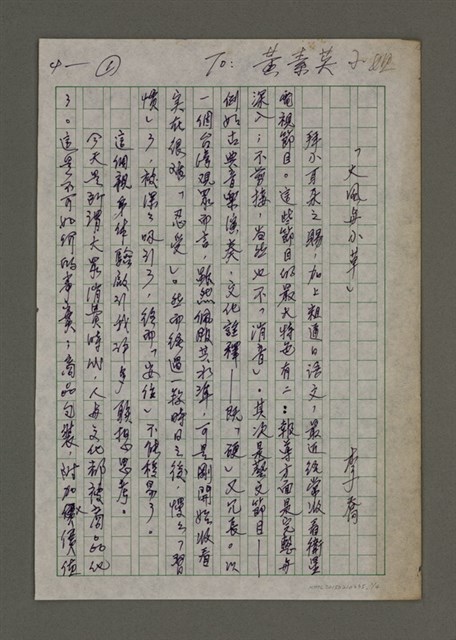 4-1 ① To: 黃素英小姐
「大風與小草」
李喬
拜小耳朵之賜,加上粗通日語文,最近經常收看衛星
電視節目。這些節目的最大特色有二:報導方面是完整與
深入;不剪接,當然也不「消音」。其次是藝文節目——
例如古典音樂演奏、文化詮釋——既「硬」又冗長。以
一個台灣觀眾而言,雖然佩服其水準,可是剛開始收看
實在很難「忍受」。然而經過一段時日之後,慢慢「習
慣」了,被深深吸引了,終而「安住」不能移易了。
這個親身體驗啟引我許多聯想與思考。
今天是所謂大眾消費時代,人與文化都被商品化
了。這是不可如何的事實;商品包裝,附加價值